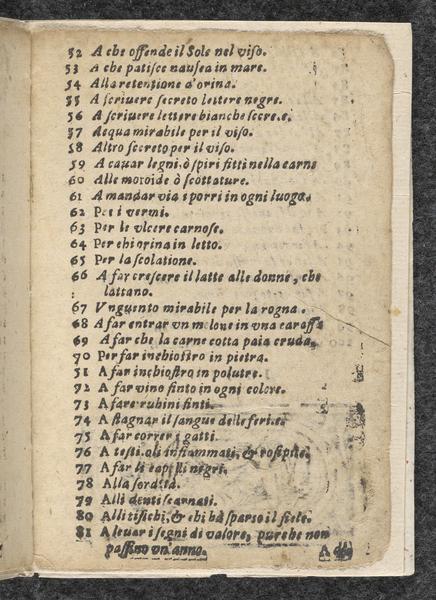 52 A che offende il Sole nel viſo.
53 A che patiſce nauſea in mare.
54 Alla retentione d'orina.
55 A ſcriuere ſecreto lettere negre.
56 A ſcriuere lettere bianche ſecre.e.
57 Acqua mirabile per il viſo.
58 Altro ſecreto per il viſo.
59 A cauar legni, ò ſpiri fitti nella carne
60 Alle moroide ò ſcottature.
61 A mandar via i porri in ogni luogo.
62 Per i vermi.
63 Per le vlcere carnoſe.
64 Per chi orina in letto.
65 Per la ſcolatione.
66 A far creſcere il latte alle donne, che
lattano.
67 Vnguento mirabile per la rogna.
68 A far entrar vn melone in vna caraffa
69 A far che la carne cotta paia cruda.
70 Per far inchioſtro in pietra.
51 A far inchioſtro in poluere.
92 A far vino finto in ogni colore.
73 A fare rubini finti.
74 A ſtagnar il ſangue delle feri.e.
75 A far correr i gatti.
76 A teſti.oli infiammati, &
77 A far li capilli negri.
78 Alla ſordità.
79 Alli denti ſcarnati.
80 Alli tiſichi, & chi hà ſparſo il fiele.
81 A leuar i ſegni di valore, purche non
paſſino vn'anno.